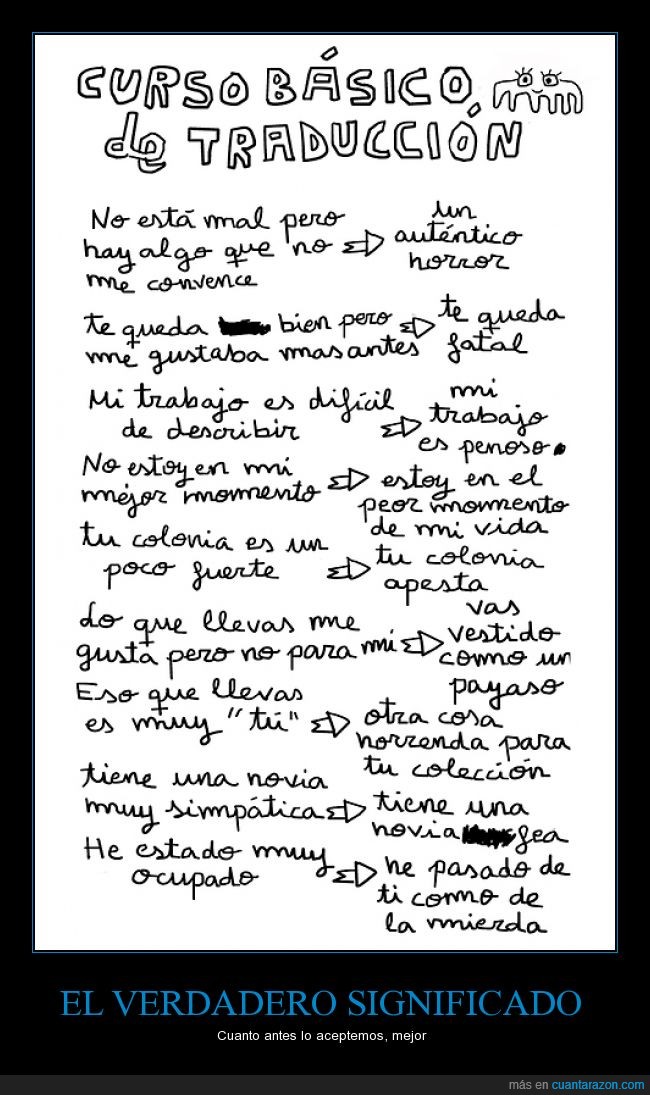 CURSO BÁSICO
de TRADUCCIÓN
No está mal pero
hay algo que no
me convence
un
auténtico
horror
te queda bien pero
me gustaba mas antes
te queda
fatal
Mi trabajo es difícil
de describir
mi
trabajo
es penoso.
No estoy en mi
mejor momento
estoy en el
peor momento
de mi vida
tu colonia es un
poco fuerte
tu colonia
apesta
Lo que llevas me
gusta pero no para mi
vas
vestido
como un
payaso
Eso que llevas
es muy "tú"
otra cosa
horrenda para
tu colección
tiene una novia
muy simpática
tiene una
novia fea
He estado muy
ocupado
he pasado de
ti como de
la mierda
EL VERDADERO SIGNIFICADO
Cuanto antes lo aceptemos, mejor
más en cuantarazon.com